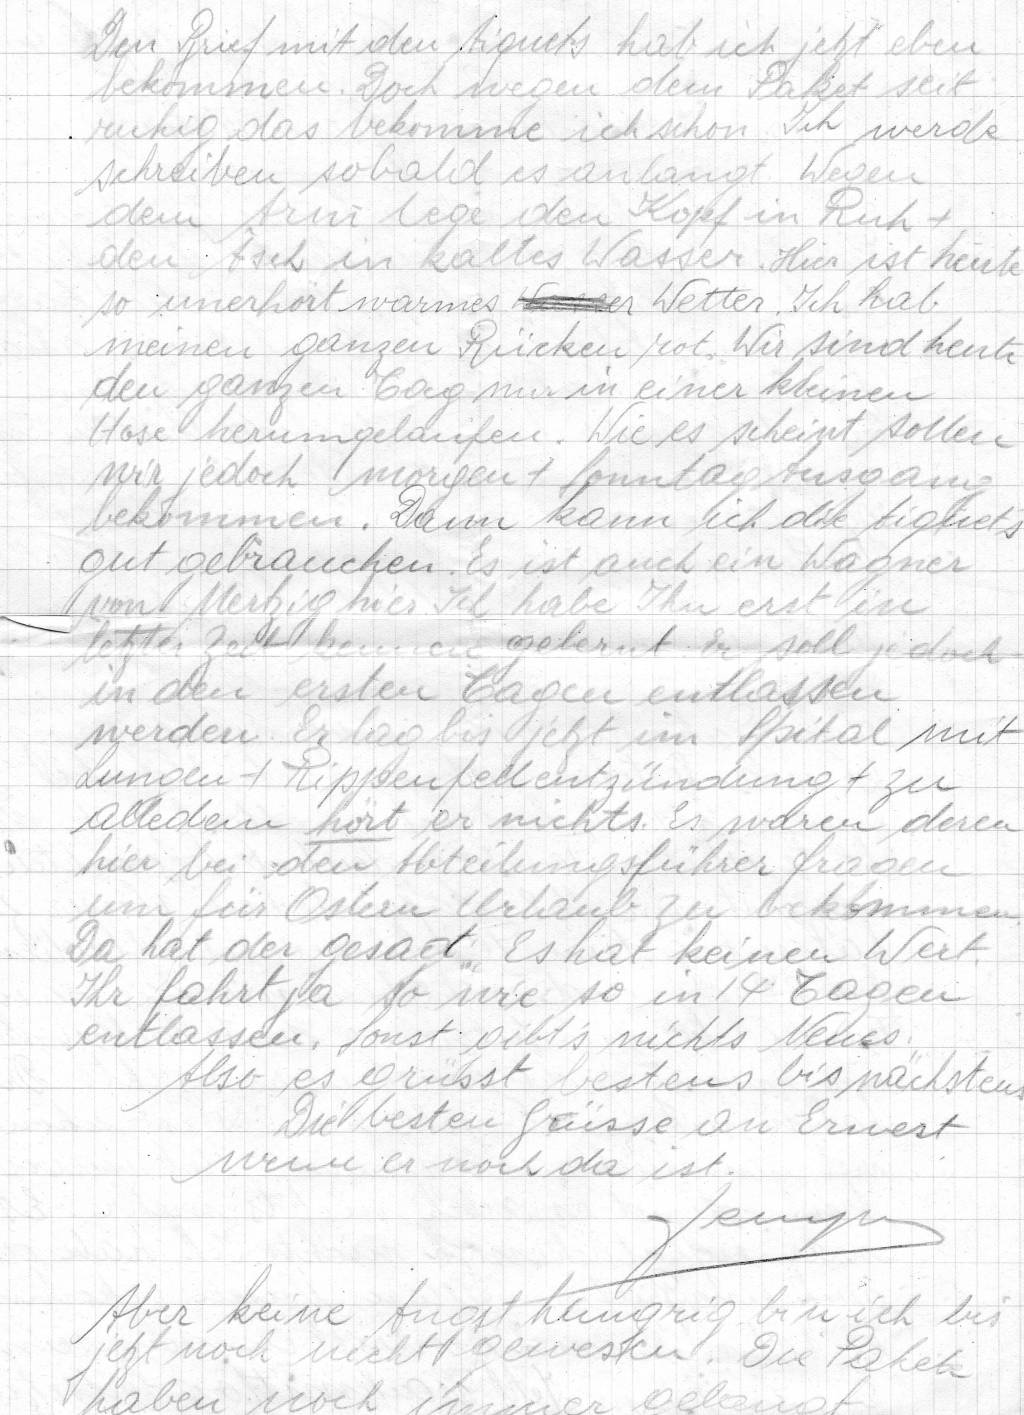 Den Brief mit den tiquets hab ich jetzt eben
bekommen. Doch wegen dem Paket seit
ruhig das bekomme ich schon. Ich werde
schreiben sobald es anlangt. Wegen
dem Arm lege den Kopf in Ruh +
den Asch in kaltes Wasser. Hier ist heute
so unerhört warmes Wetter. Ich hab
meinen ganzen Rücken rot. Wir sind heute
den ganzen Tag nur in einer kleinen
Hose herumgelaufen. Wie es scheint sollen
wir jedoch morgen + Sonntag Ausgang
bekommen. Dann kann ich die tiquets
gut gebrauchen. Es ist auch ein Wagner
von Mertzig hier. Ich habe Ihn erst in
letzter Zeit kennen gelernt. Er soll jedoch
in den ersten Tagen entlassen
werden. Er lag bis jetzt im Spital mit
Lungen + Rippenfellentzündung + zu
alledem hört er nichts. Es waren deren
hier bei den Abteilungsführer fragen
um für Ostern Urlaub zu bekommen.
Da hat der gesagt „Es hat keinen Wert.
Ihr fahrt ja so wie so in 14 Tagen
entlassen. Sonst gibt's nichts Neues.
Also es grüsst bestens bis nächstens
Die besten Grüsse an Ernest
wenn er noch da ist.
Jempy
Aber keine Angst hungrig bin ich bis
jetzt noch nicht gewesen. Die Pakete
haben noch immer gelangt